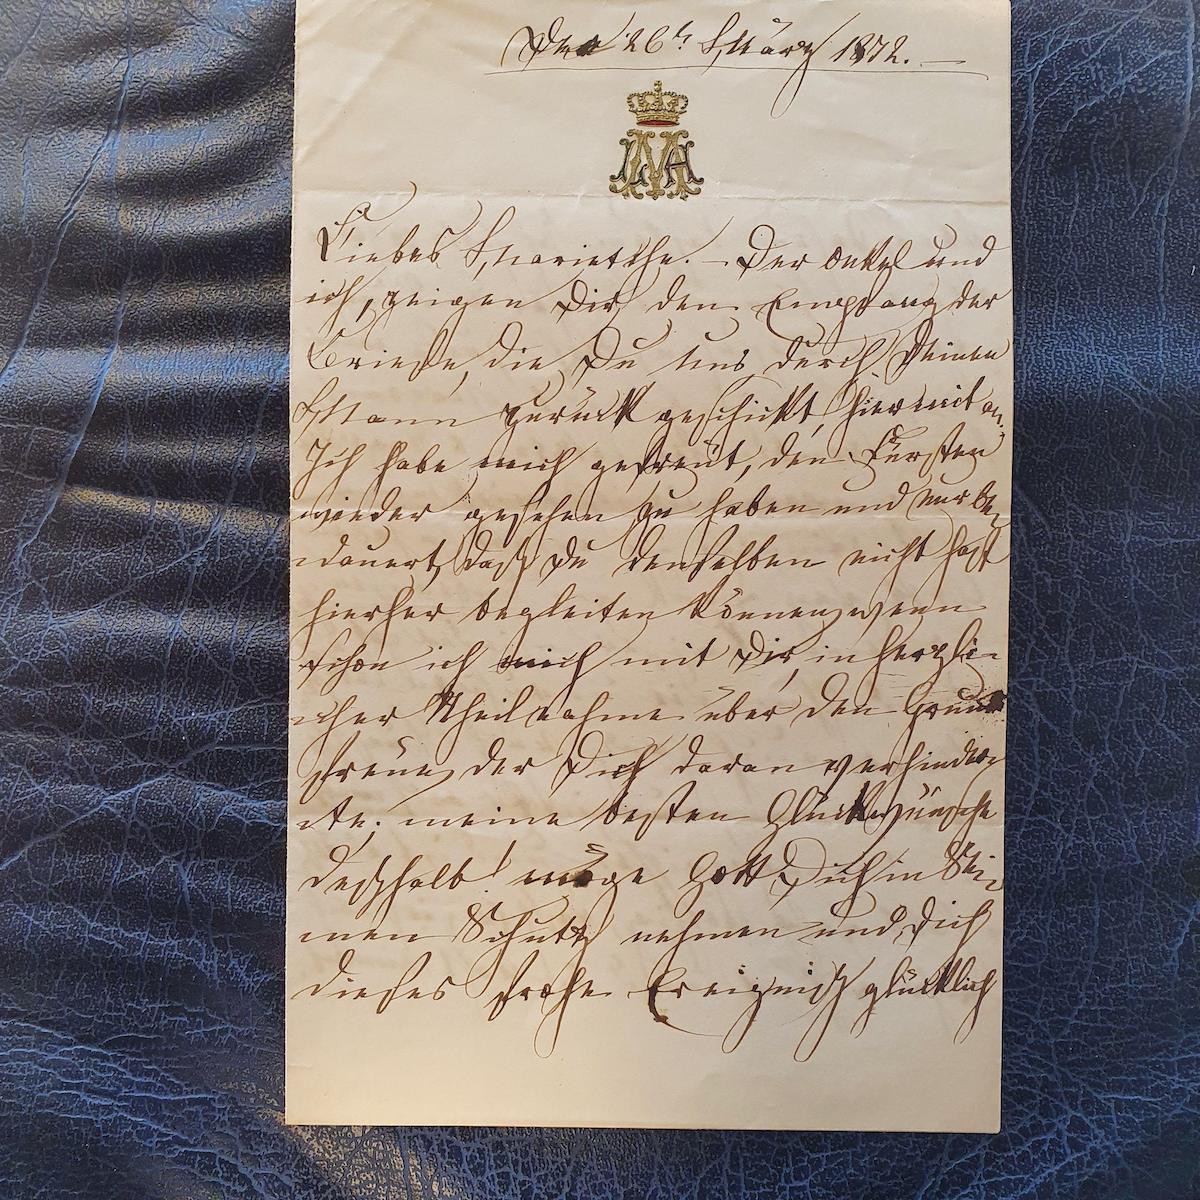 Den 26t März 1872.
MA
Liebes Mariettche. – Der Onkel und
ich, zeigen Dir den Empfang der
Briefe, die Du uns durch Deinen
Mann zurück geschickt, hiermit an.
Ich habe mich gefreut, den Fürsten
wieder gesehen zu haben und nur be-
dauert, daß Du denselben nicht hast
hierher begleiten können, wenn
schon ich mich mit Dir, in herzli-
cher Theilnahme über den Grund
freue, der Dich daran verhinder-
te; meine besten Glückwünsche
deßhalb! möge Gott Dich in Sei-
nen Schutz nehmen und Dich
dieses frohe Ereigniß glücklich